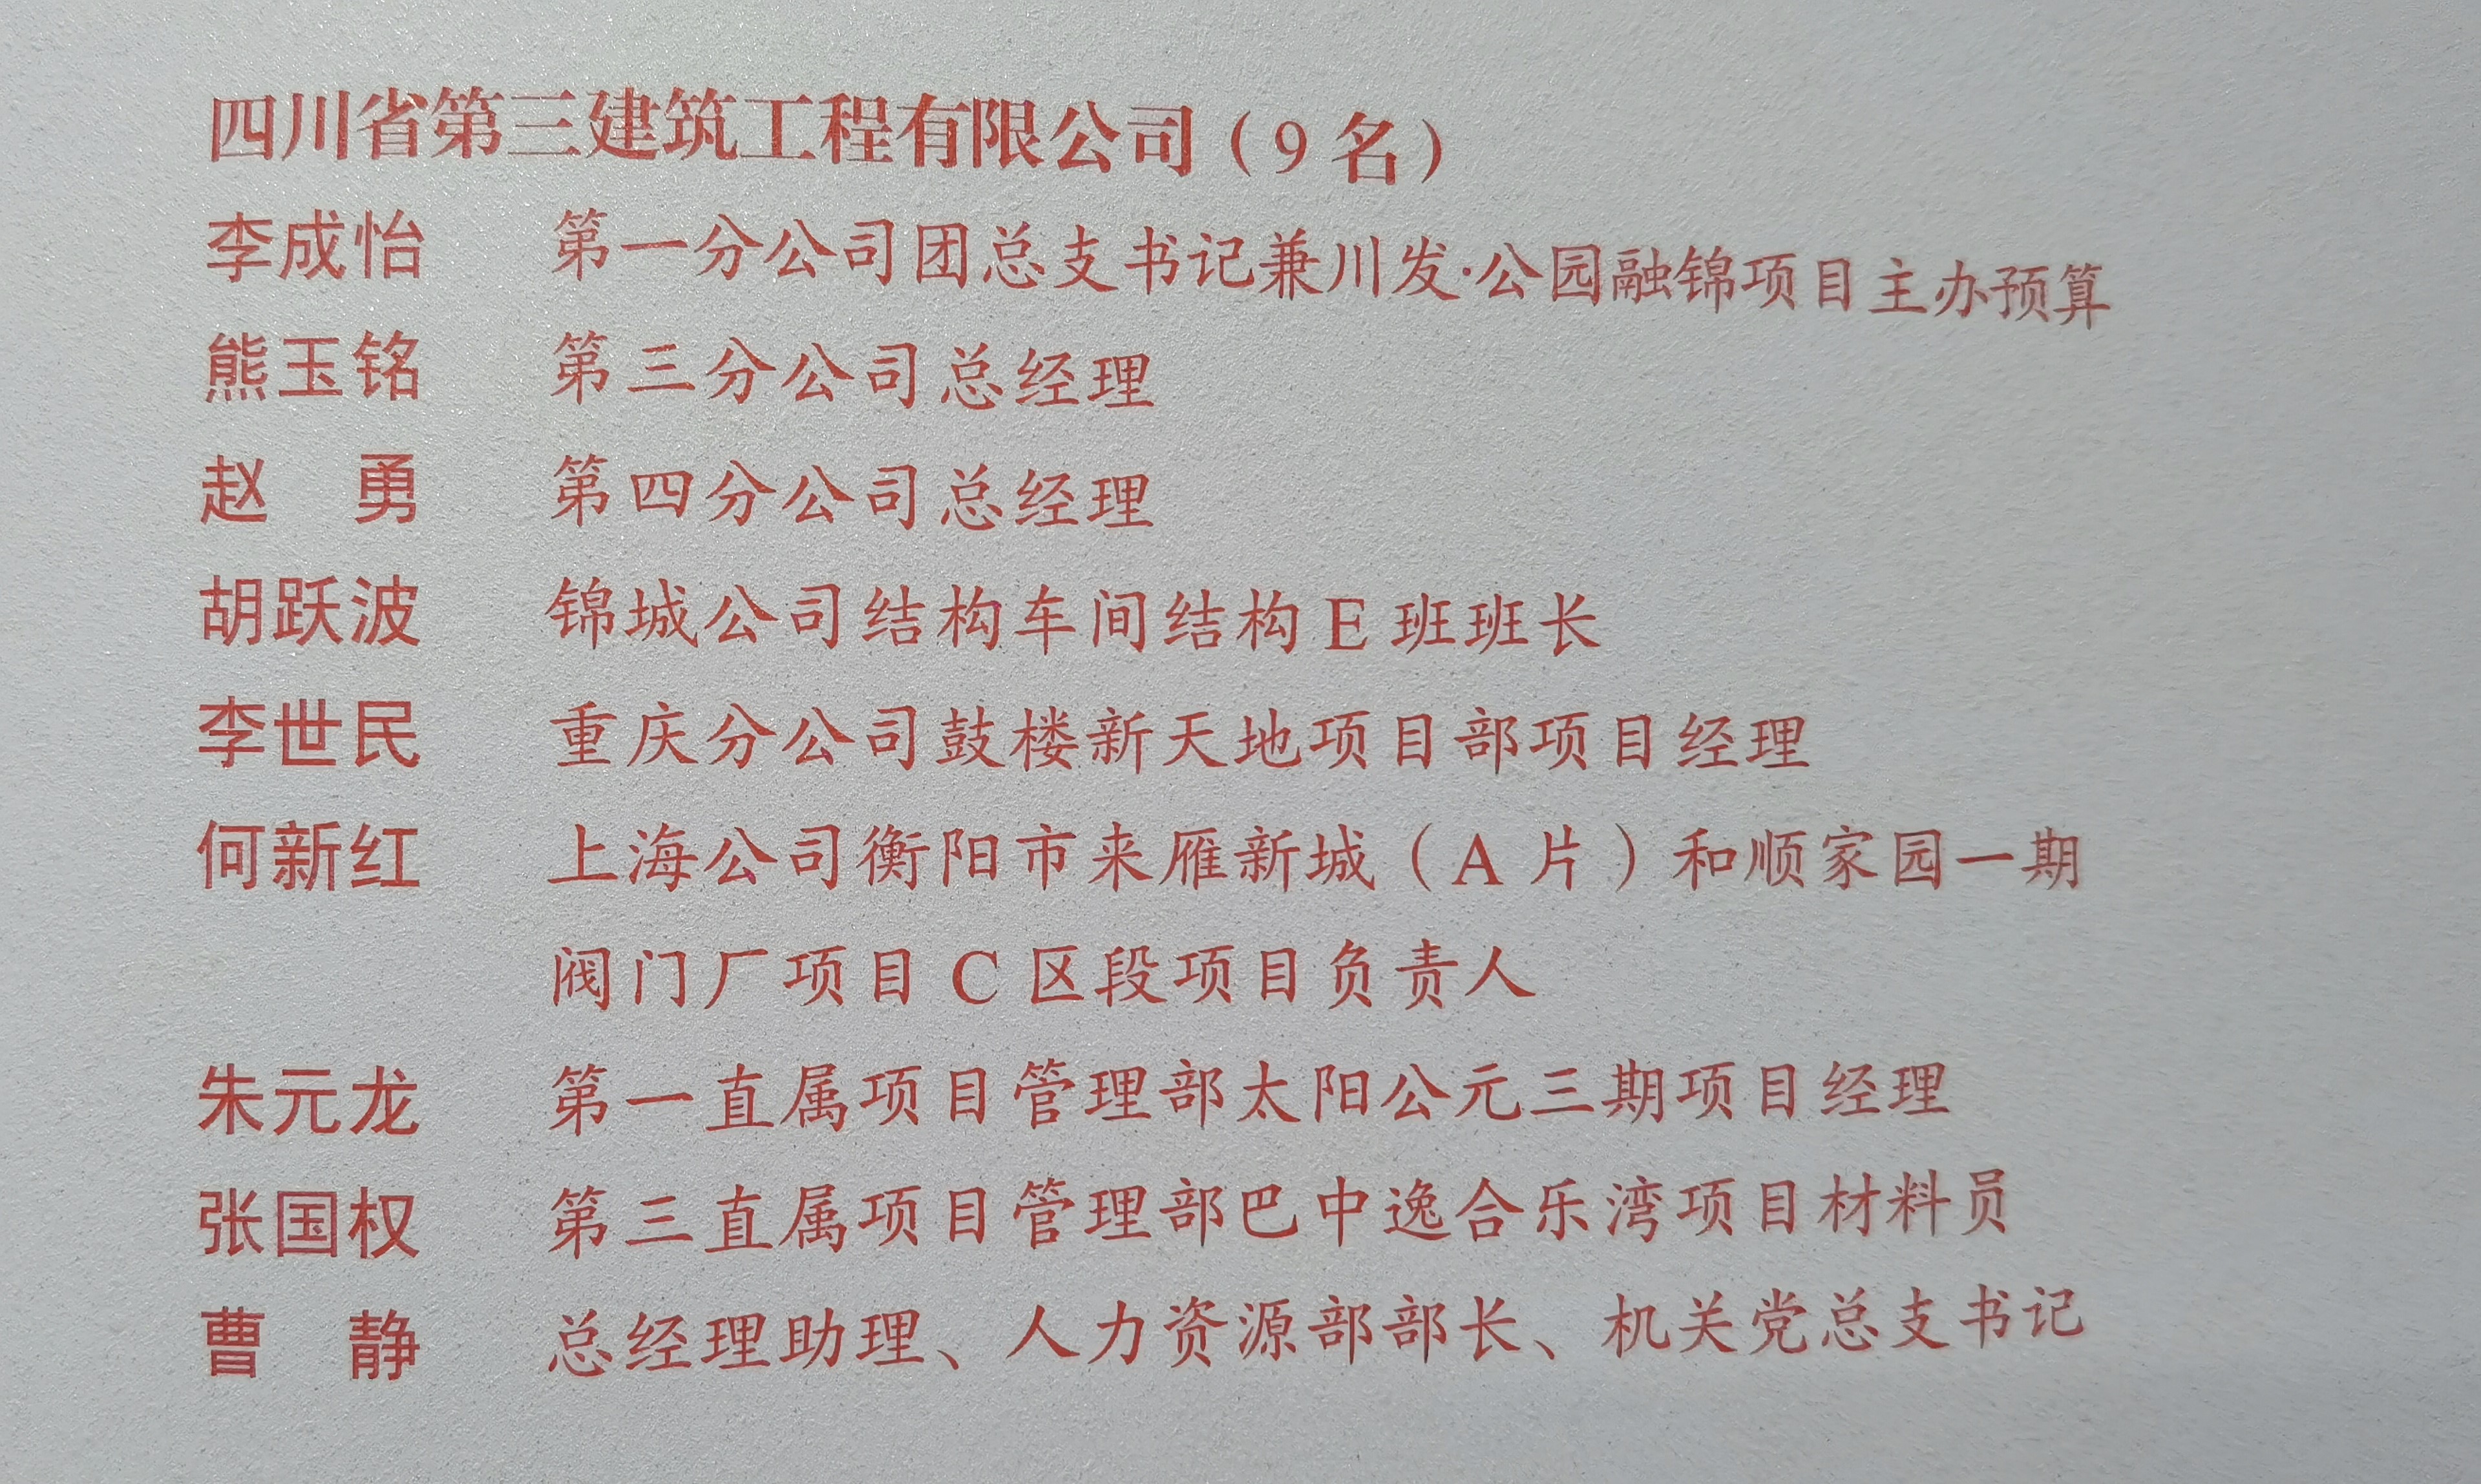 四川省第三建筑工程有限公司（9名）
李成怡 第一分公司团总支书记兼川发·公园融锦项目主办预算
熊玉铭 第三分公司总经理
赵 勇 第四分公司总经理
胡跃波 锦城公司结构车间结构E班班长
李世民 重庆分公司鼓楼新天地项目部项目经理
何新红 上海公司衡阳市来雁新城（A片）和顺家园一期
阀门厂项目C区段项目负责人
朱元龙 第一直属项目管理部太阳公元三期项目经理
张国权 第三直属项目管理部巴中逸合乐湾项目材料员
曹 静 总经理助理、人力资源部部长、机关党总支书记